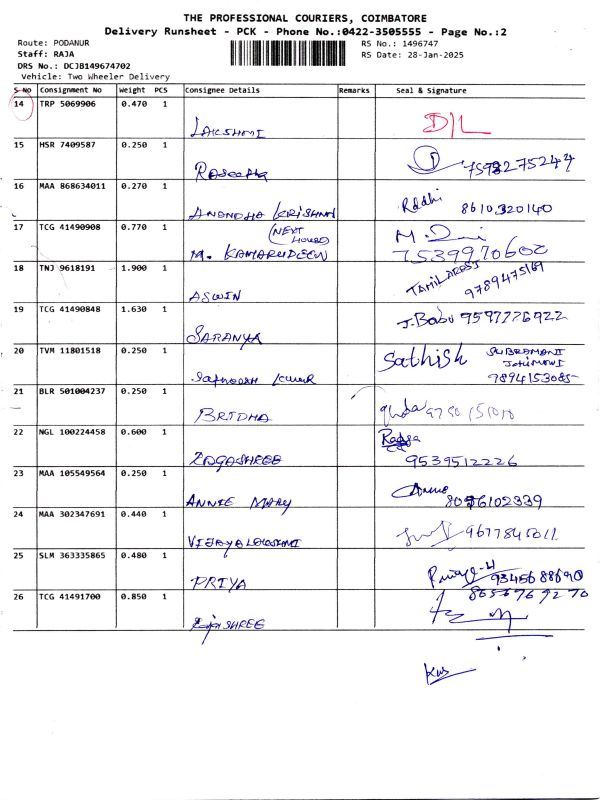 THE PROFESSIONAL COURIERS, COIMBATORE
Delivery Runsheet - PCK - Phone No.:0422-3505555 - Page No.:2
Route: PODANUR RS No.: 1496747
Staff: RAJA RS Date: 28-Jan-2025
DRS No.: DCJB149674702
Vehicle: Two Wheeler Delivery
S No Consignment No Weight PCS Consignee Details Remarks Seal & Signature
14 TRP 5069906 0.470 1
LAKSHMI D/L
15 HSR 7409587 0.250 1
16 MAA 868634011 0.270 1
ANANDHA KRISHNA 8610320140
17 TCG 41490908 0.770 1
(NEXT
HOUSE)
M. KAMARUDEEN 7539970602
18 TNJ 9618191 1.900 1
ASWIN TAMILARASI 9789475169
19 TCG 41490848 1.630 1
SARANYA J.Babu 9597776922
20 TVM 11801518 0.250 1
Sathish SUBRAMANI
Kumar 7894153085
21 BLR 501004237 0.250 1
BRIDHA
22 NGL 100224458 0.600 1
9539512226
23 MAA 105549564 0.250 1
ANNIE MARY 8056102339
24 MAA 302347691 0.440 1
VIJAYALAKSHMI
25 SLM 363335865 0.480 1
PRIYA 9345688690
26 TCG 41491700 0.850 1
8656769270